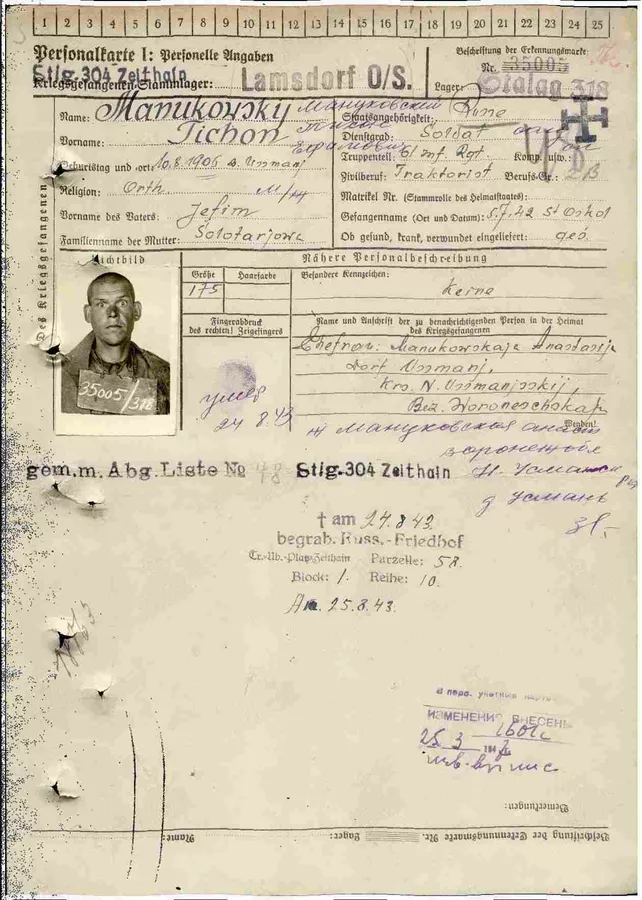 1 2 3 4 5 6 7 8 9 10 11 12 13 14 15 16 17 18 19 20 21 22 23 24 25
Personalkarte I: Personelle Angaben
Beschriftung der Erkennungsmarke
Stlg. 304 Zeithain
Nr. 35005
Kriegsgefangenen-Stammlager: Lamsdorf O/S.
Lager: Stalag 318
Name: Manukovsky Мануковский
Vorname: Tichon
Staatsangehörigkeit: Russe
Dienstgrad: Soldat
Truppenteil: 61 Inf. Rgt. Komp. usw.:
Geburtstag und -ort: 10.8.1906 Ussmanj
Zivilberuf: Traktorist Berufs-Gr.:
Religion: Orth.
Matrikel Nr. (Stammrolle des Heimatstaates):
Vorname des Vaters: Jefim
Gefangennahme (Ort und Datum): 5.7.42 St Oskol
Familienname der Mutter: Solotarjowa
Ob gesund, krank, verwundet eingeliefert: ges.
Des Kriegsgefangenen
Lichtbild
Nähere Personalbeschreibung
Größe Haarfarbe
Besondere Kennzeichen:
175
Keine
Fingerabdruck
des rechten! Zeigefingers
Name und Anschrift der zu benachrichtigenden Person in der Heimat
des Kriegsgefangenen
Ehefrau: Manukowskaja Anastasija
Dorf Ussmanj,
Krs. N. Ussmanjskij,
Bez. Woroneschskaja
35005/318
умер
24 8.43
Wenden!
ж Мануковская
Н. Усманск
д Усмань
gem.m. Abg. Liste No 48 Stlg. 304 Zeithain
† am 24.8.43.
begrab. Russ.-Friedhof
Tr.-Üb.-Platz-Zeithain Parzelle: 58.
Block: 1. Reihe: 10.
Am 25.8.43.
В перс. учетные карт.
ИЗМЕНЕНИЯ ВНЕСЕНЫ
25 3
Bemerkungen:
Beschriftung der Erkennungsmarke Nr. Lager: Name: